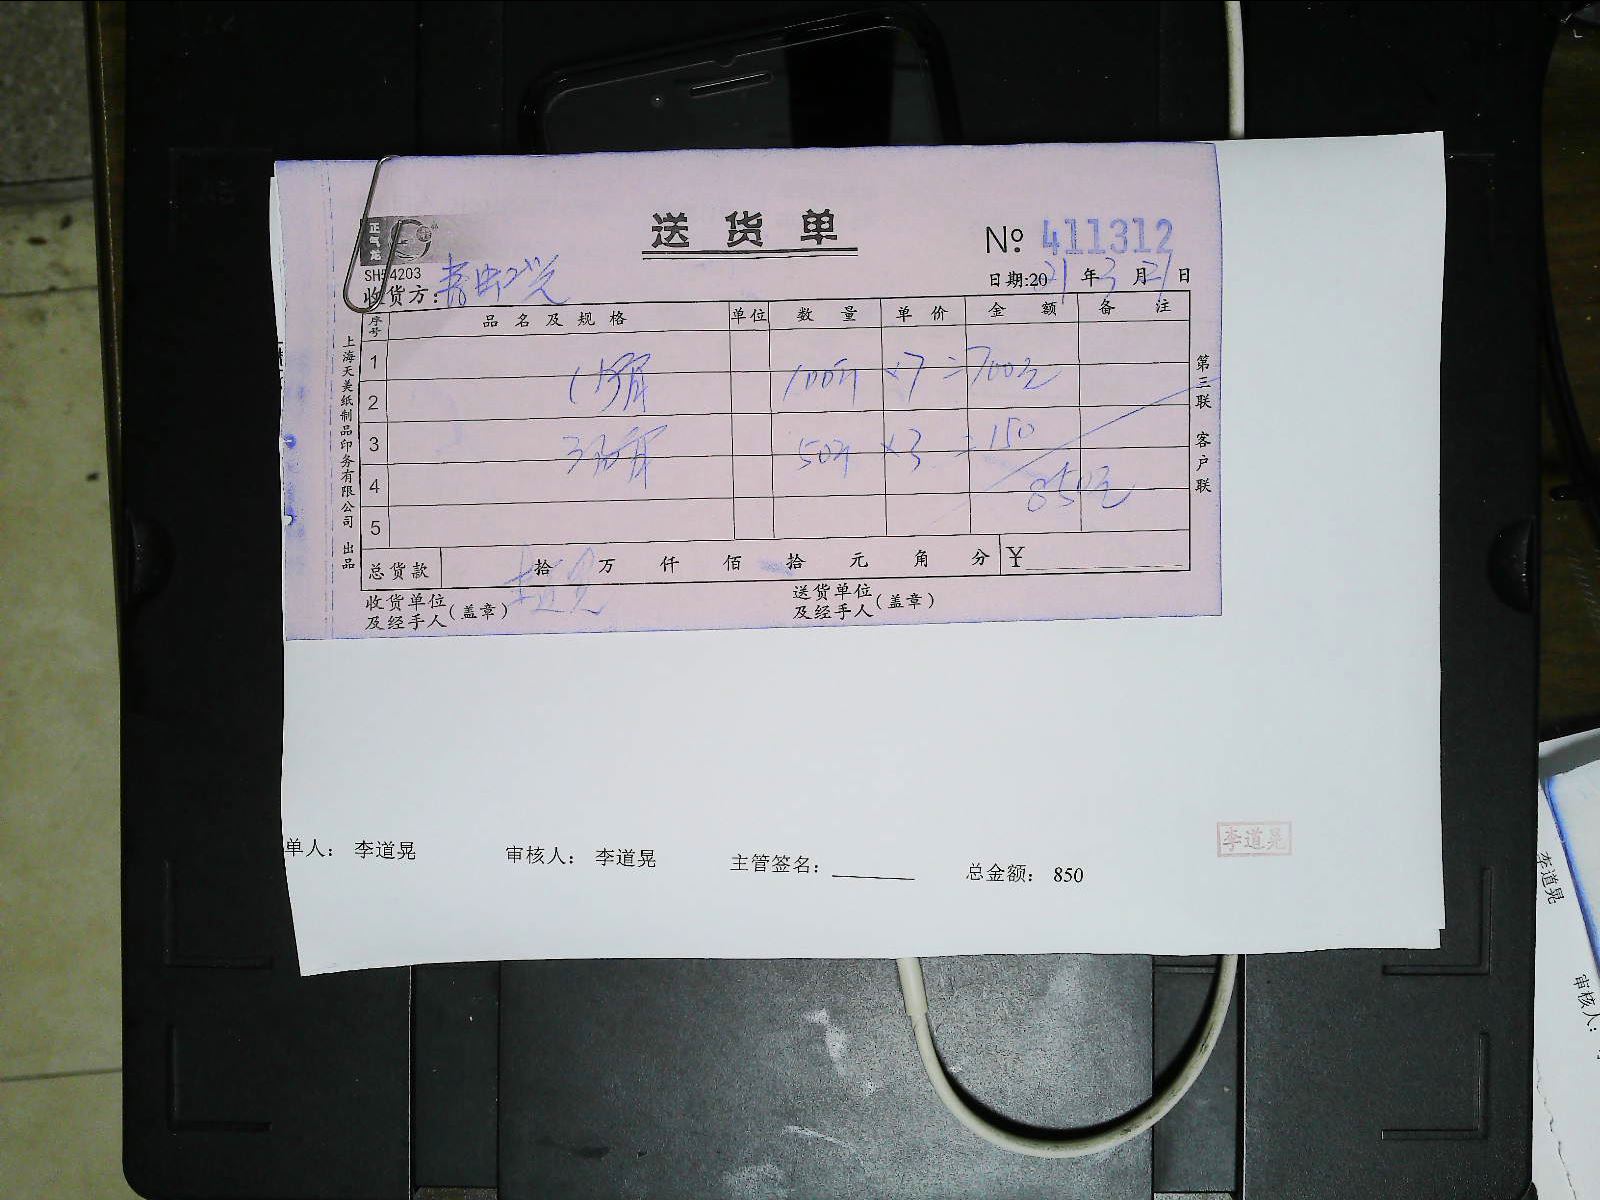 正气龙
送货单
No 411312
SH54203
收货方:
日期:2021年3月21日
序号 品名及规格 单位 数量 单价 金额 备注
1
100斤 ×7 =700元
2
3
50斤 ×3 =150
4
850元
5
总货款 拾 万 仟 佰 拾 元 角 分 ¥
收货单位及经手人(盖章) 李道晃
送货单位及经手人(盖章)
上海天美纸制品印务有限公司 出品
第三联 客户联
单人: 李道晃 审核人: 李道晃 主管签名: 总金额: 850
李道晃
李道晃
审核人: